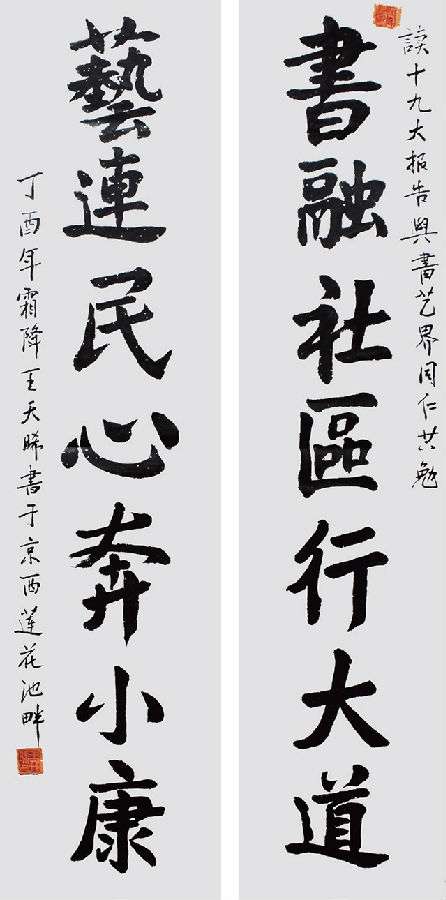 讀十九大报告與書艺界同仁共勉
書融社區行大道
藝連民心奔小康
丁酉年霜降王天晞書于京西蓮花池畔